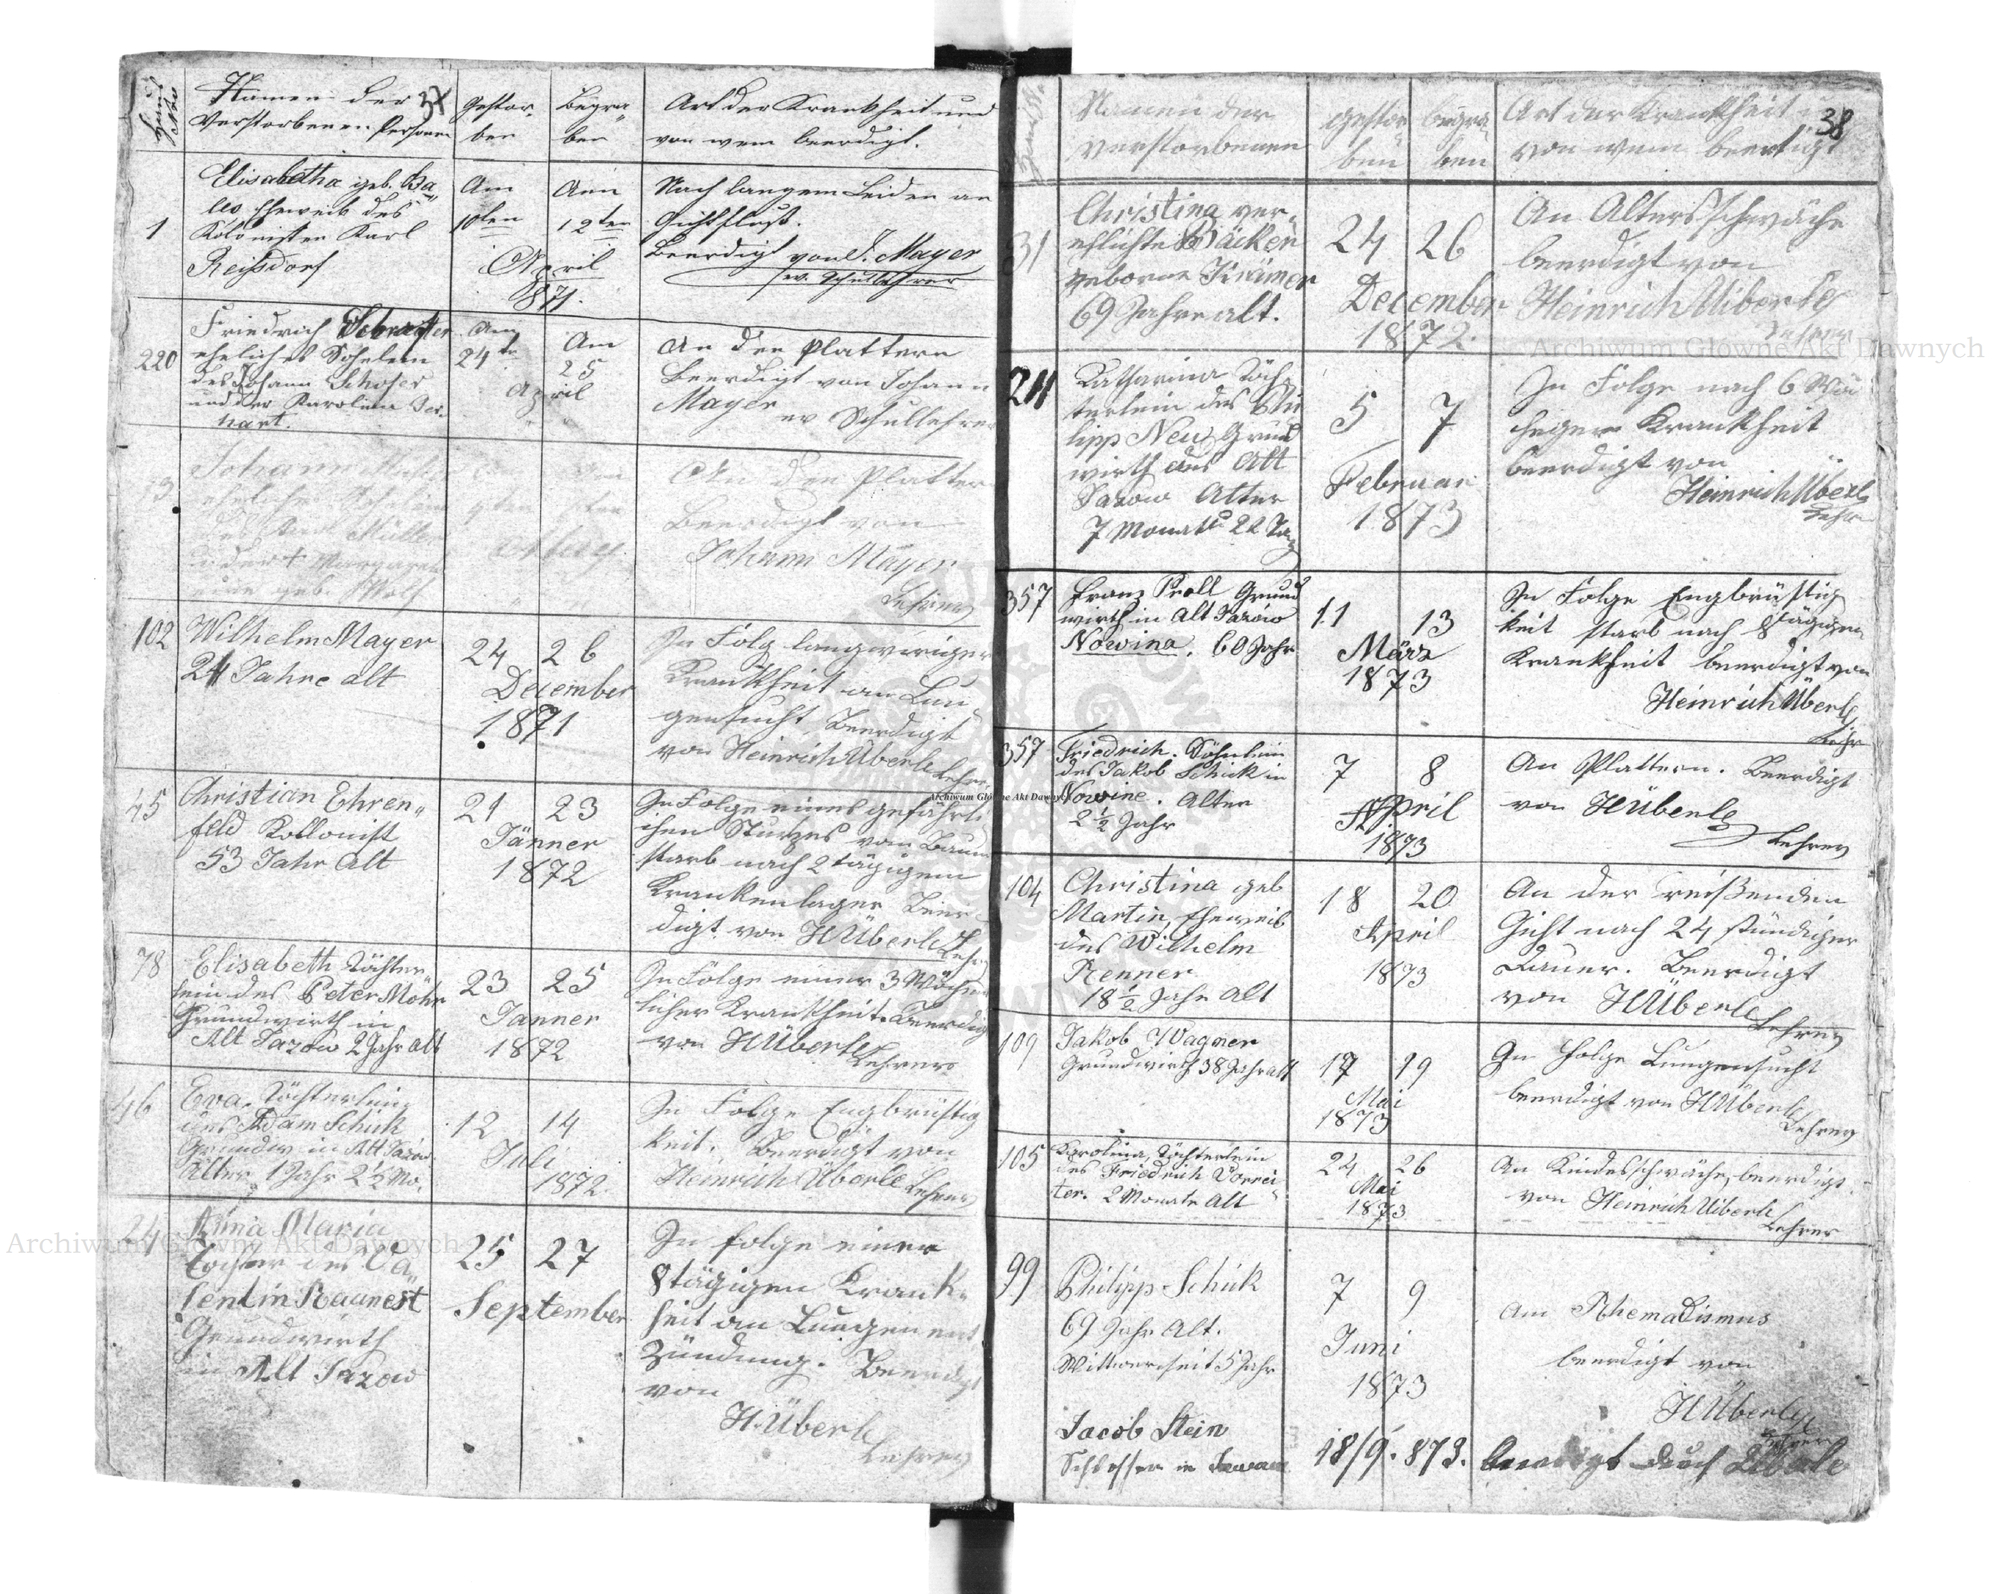 Haus Nro
Namen der 37
Verstorbenen Personen
Gestor-
ben
Begra-
ben
Art der Krankheit und
von wem beerdigt.
1
Elisabetha geb. Ba-
Eheweib des
Kolonisten Karl
Reissdorf
Am
10ten
Am
12ten
April
1871.
Nach langem Leiden an
Gichtfluß.
Beerdigt von J. Mayer
ev. Schullehrer
220
Friedrich
eheliches Söhnlein
des Johann Schofer
und der Karolina Ger-
hart.
Am
24te
Am
25
April
An den Plattern
Beerdigt von Johann
Mayer ev Schullehrer
73
Johann Müller
eheliches Söhnlein
des Karl Müller
u der + Margare-
geb. Wolf
Am
Am
An den Platter
Beerdigt von
Johann Mayer
Lehrer
102
Wilhelm Mayer
24 Jahre alt
24 26
December
1871
In Folg langwieriger
Krankheit an Lun-
gensucht, Beerdigt
von Heinrich Überle Lehrer
45
Christian Ehren-
feld Kollonist
53 Jahr Alt
21 23
Jänner
1872
In Folge eines gefährl-
ichen Sturtzes vom Baum
starb nach 2 tägigem
Krankenlager Beer-
digt von HÜberle Lehrer
78
Elisabeth Töchter-
lein des Peter Möhr
Grundwirth in
Alt Jazow 2 Jahr alt
23 25
Jänner
1872
In Folge einer 3 Wöchent-
licher Krankheit. Beerdigt
von HÜberle Lehrer
46
Eva. Töchterlein
des Adam Schük
Grundw in Alt Jazow
Alter 1 Jahr 2½ Mo.
12 14
Juli
1872.
In Folge Engbrüstig
keit. Beerdigt von
Heinrich Überle Lehrer
24
Anna Maria
Tochter des Va-
lentin
Grundwirth
in Alt Jazow
25 27
September
In folge einer
8 tägigen Krank-
heit an Lungenent
zündung. Beerdigt
von
H.Überle
Lehrer
38
Namen der
verstorbenen
gestor
ben
begra-
ben
Art der Krankheit u
von wem beerdigt
31
Christina ver-
ehlichte Bäcker
geborne Krämer
69 Jahre alt.
24 26
December
1872.
An Altersschwäche
beerdigt von
Heinrich Überle
Lehrer
211
Katharina Töch-
terlein des Phi
lipp Neu, Grund
wirth aus Alt
Jazow Alter
7 Monate 22 Tag
5 7
Februar
1873
In Folge nach 6 Wö
chiger Krankheit
beerdigt von
Heinrich Überle
Lehr
357
Franz Proll Grund
wirth in Alt Jazów
Nowina. 60 Jahr
11 13
März
1873
In Folge Engbrüstig
keit starb nach 8 tägigen
Krankheit beerdigt von
Heinrich Überle
Lehr
357
Friedrich. Söhnlein
des Jakob Schük in
Nowine. Alter
2½ Jahr
7 8
April
1873
An Plattern. Beerdigt
von HÜberle
Lehrer
104
Christina geb
Martin, Eheweib
des Wilhelm
Renner
18½ Jahr Alt
18 20
April
1873
An der reißenden
Gicht nach 24 stündiger
Dauer. Beerdigt
von HÜberle
Lehrer
109
Jakob Wagner
Grundwirth 38 Jahr alt
17 19
Mai
1873
In Folge Lungensucht
beerdigt von HÜberle
Lehrer
105
Karolina, Töchterlein
des Friedrich Vorrei-
ter. 2 Monate Alt
24 26
Mai
1873
An Kindesschwäche, beerdigt
von Heinrich Überle
Lehrer
99
Philipp Schük
69 Jahr Alt.
Wittwer seit 5 Jahr
7 9
Juni
1873
Am Rhematismus
beerdigt von
HÜberle
Lehrer
Jacob Stein
Schlosser in
18/9. 873.
beerdigt durch Überle
Archiwum Główne Akt Dawnych
Archiwum Główne Akt Dawnych
Archiwum Główne Akt Dawnych